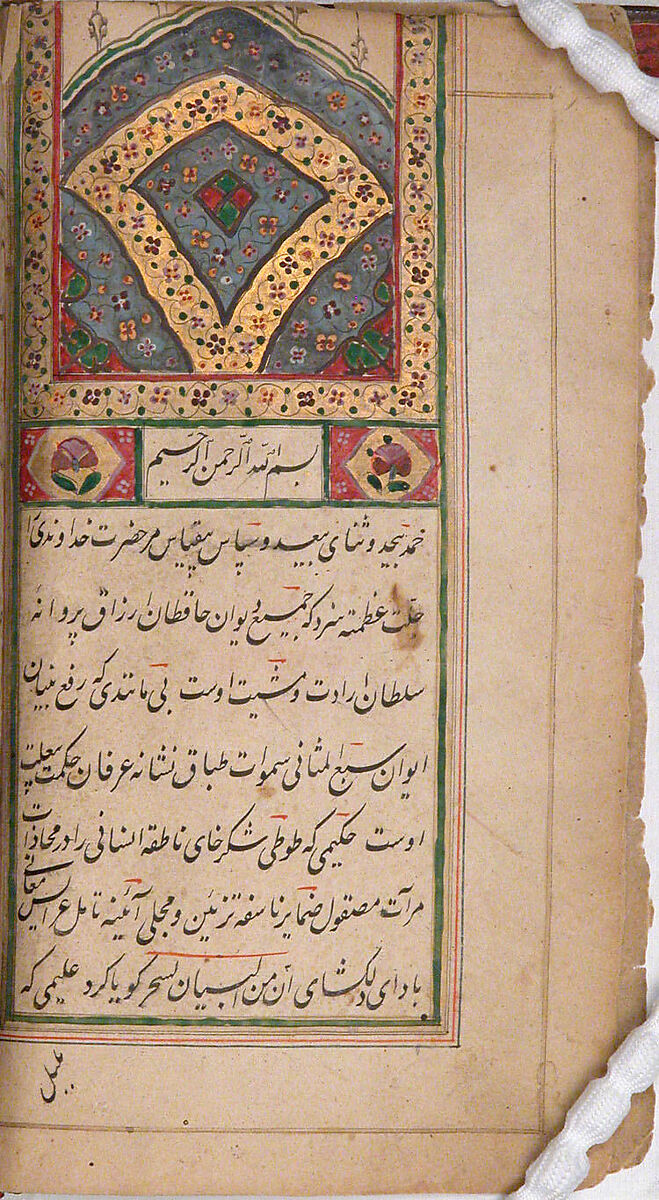 بسم الله الرحمن الرحیم
حمد بیحد و ثنای بیعد و سپاس بیقیاس مر حضرت خداوندی را
جلت عظمته سزد که جمیع دیوان حافظان ارزاق پروانهٔ
سلطان ارادت و مشیت اوست بی مانندی که رفع بنیان
ایوان سبع المثانی سموات طباق نشانه عرفان حکمت
اوست حکیمی که طوطی شکرخای ناطقه انسانی را در محاذات
مرآت مصقول ضمایر تزئین و مجلی آئینه تامل عرایس معانی
بادای دلکشای ان من البیان لسحر کویا کرد علیمی که
بلبل